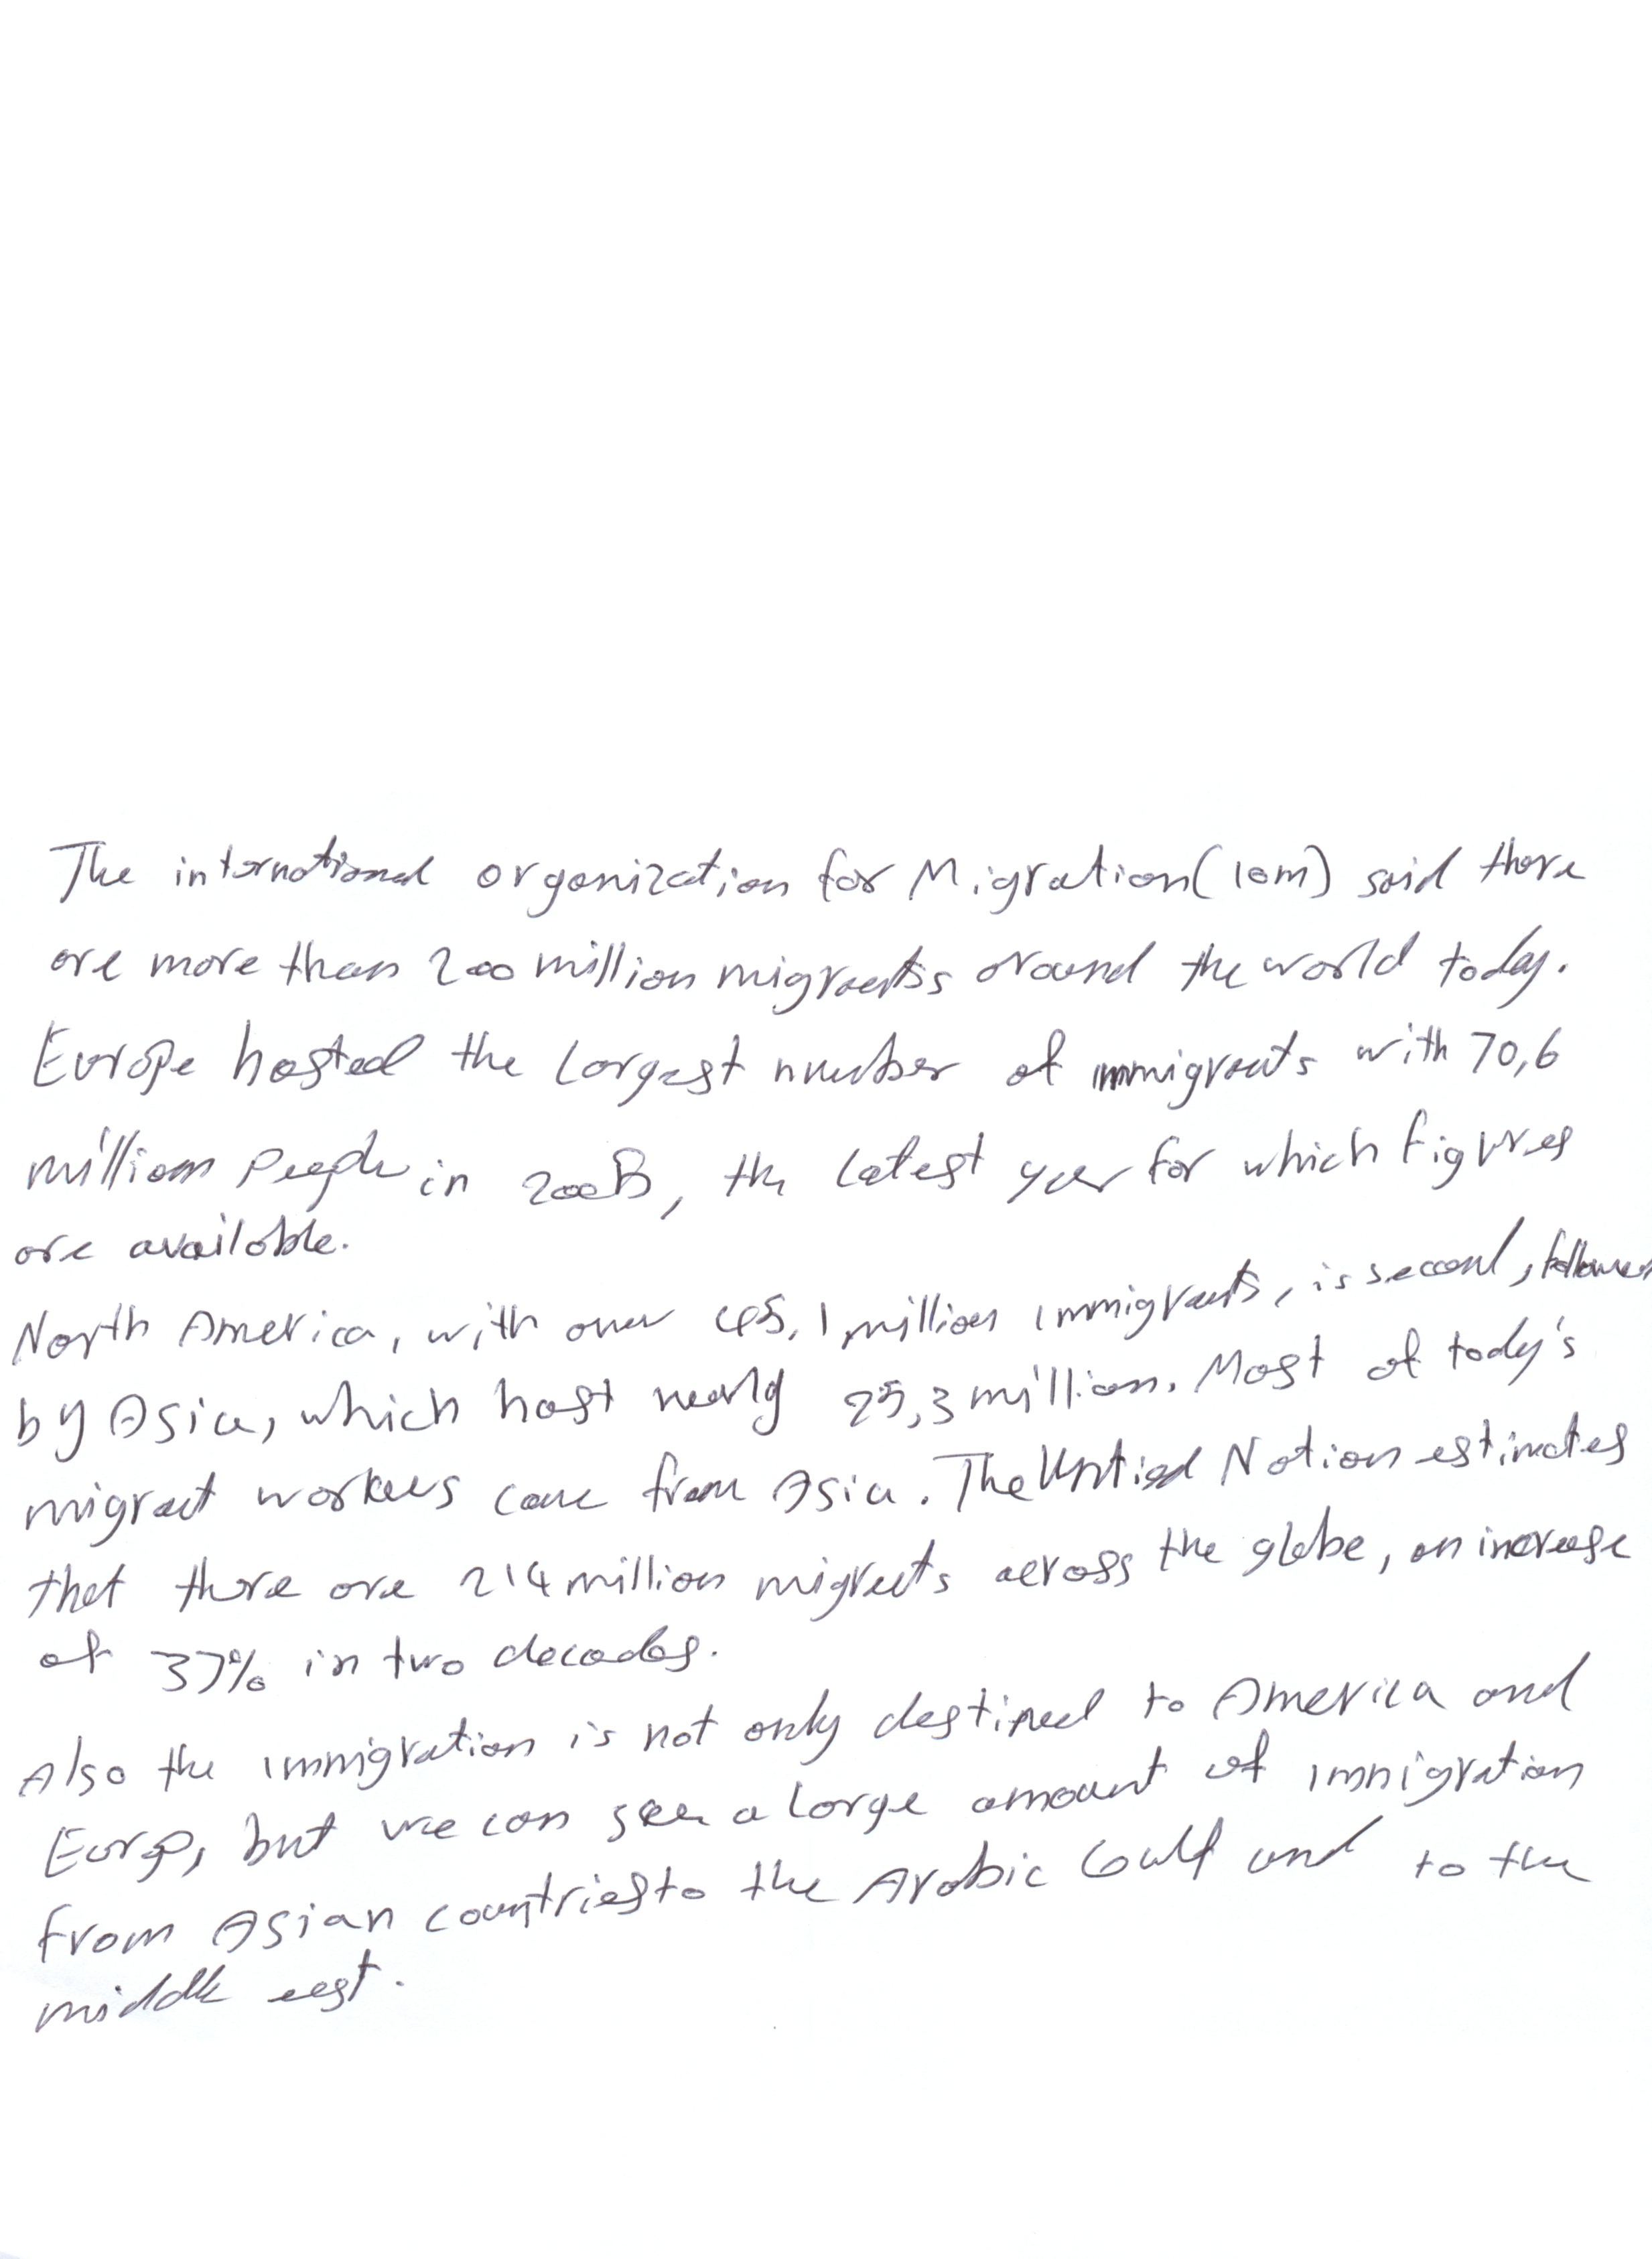 The international organization for Migration (IOM) said there
are more than 200 million migrants around the world today.
Europe hosted the largest number of immigrants with 70,6
million people in 2005, the latest year for which figures
are available.
North America, with over 45,1 million immigrants, is second, followed
by Asia, which host nearly 25,3 million. Most of today's
migrant workers come from Asia. The Untied Nation estimates
that there are 214 million migrants across the globe, an increase
of 37% in two decades.
Also the immigration is not only destined to America and
Europ, but we can see a large amount of immigration
from Asian countries to the Arabic Gulf and to the
middle east.